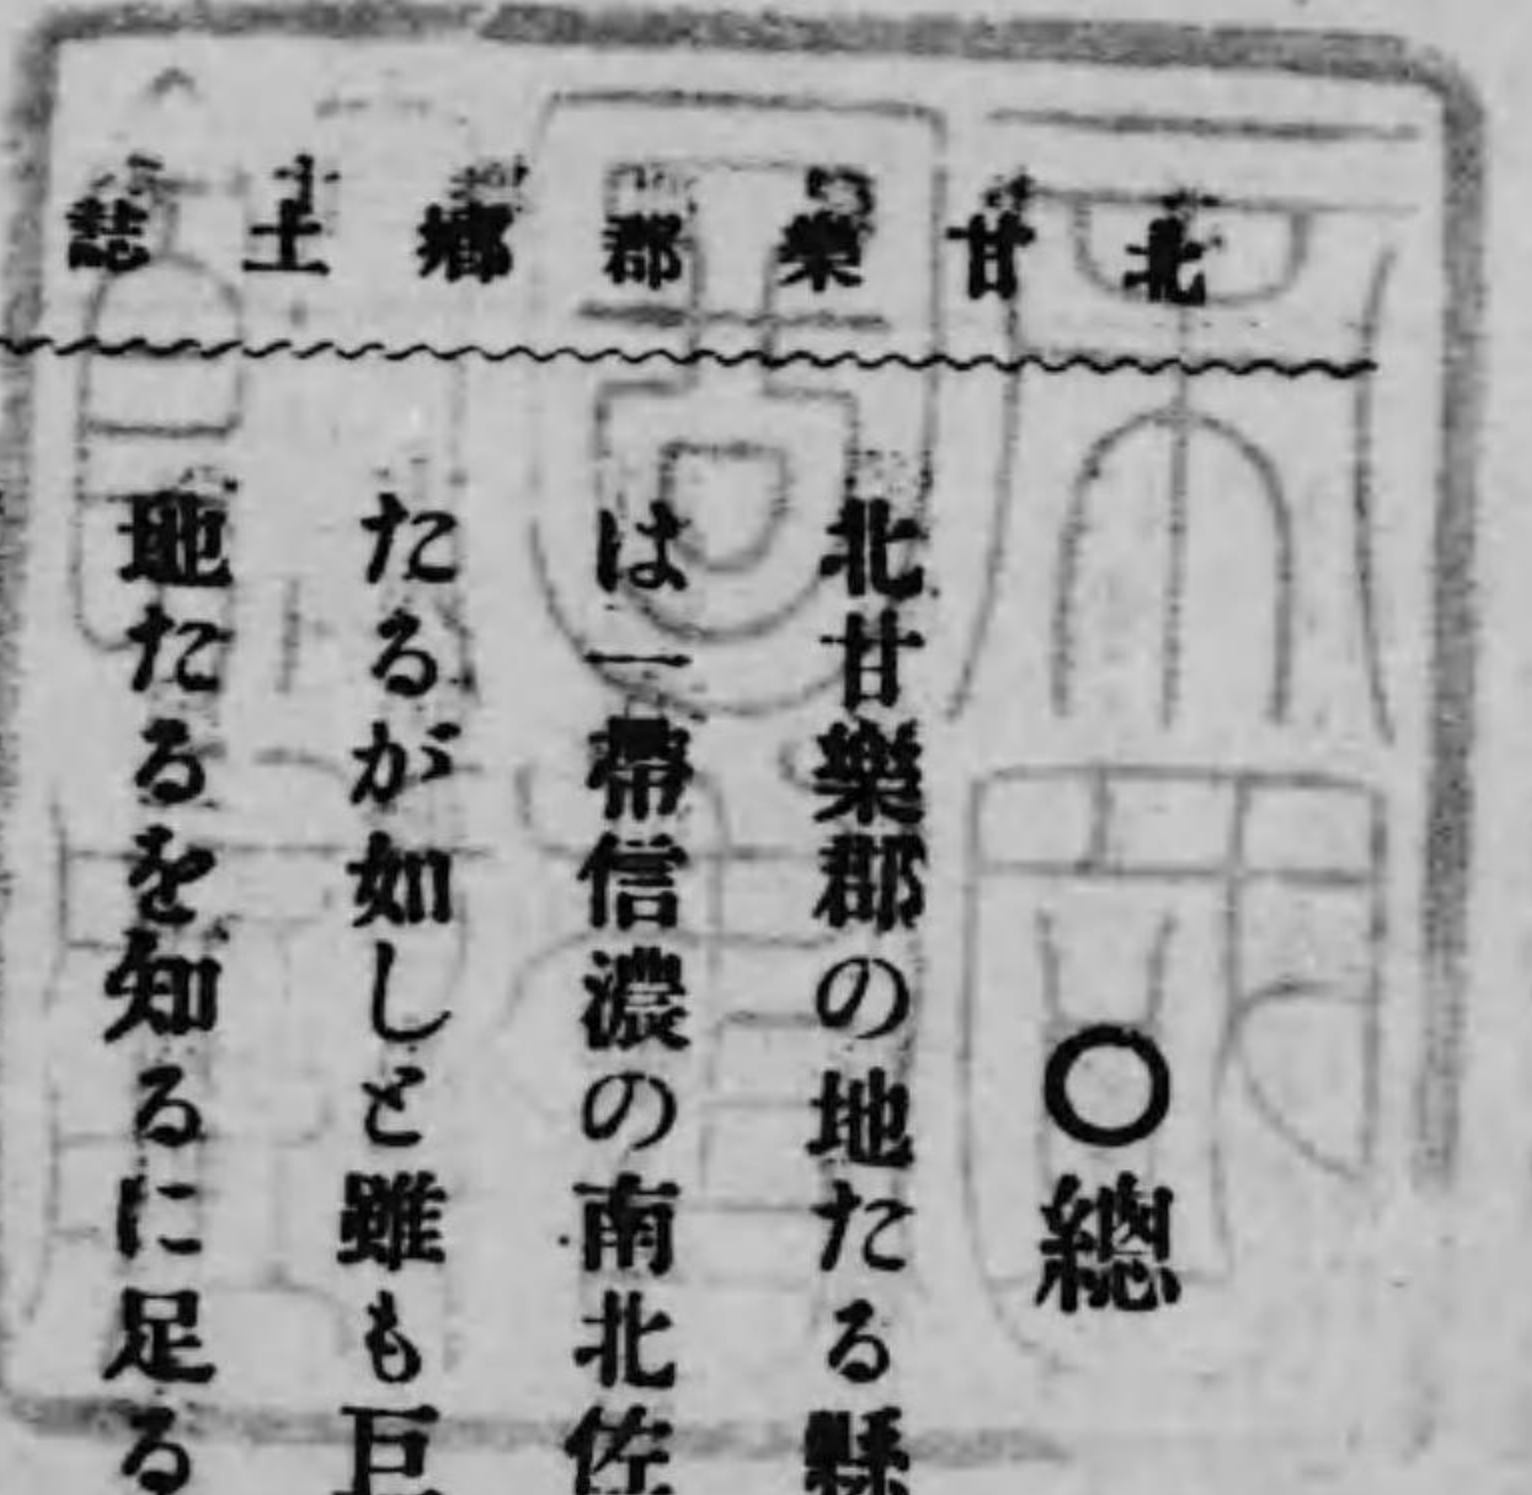 北甘樂郡鄕土誌
〇總
北甘樂郡の地たる縣
は一帶信濃の南北佐
たるが如しと雖も巨
地たるを知るに足る